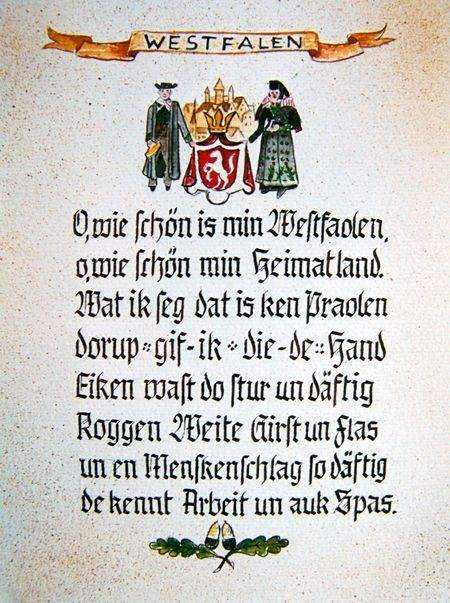 WESTFALEN
O, wie schön is min Westfaolen,
o, wie schön min Heimatland.
Wat ik seg dat is ken Praolen
dorup :: gif - ik :: die - de :: Hand
Eiken wast do stur un däftig
Roggen Weite Girst un Flas
un en Menskenschlag so däftig
de kennt Arbeit un auk Spas.